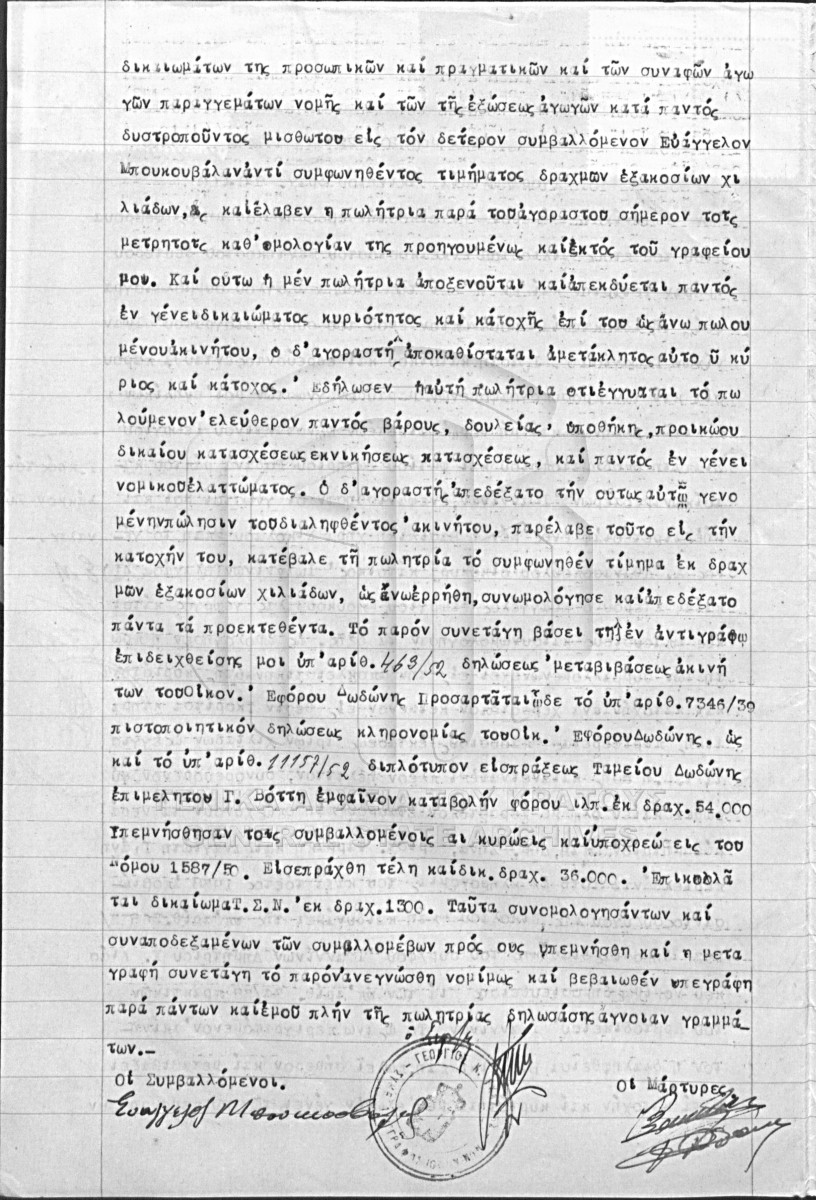 δικαιωμάτων της προσωπικῶν καί πραγματικῶν καί τῶν συναφῶν ἀγω
γῶν παραγγεμάτων νομῆς καί τῶν τῆς ἐξώσεως ἀγωγῶν κατά παντός
δυστροποῦντος μισθωτου εἰς τόν δετερον συμβαλλόμενον Εὐάγγελον
Μπουκουβάλαν ἀντί συμφωνηθέντος τιμήματος δραχμων ἑξακοσίων χι
λιάδων, ἅς καί ἔλαβεν η πωλήτρια παρά τοῦ ἀγοραστου σήμερον τοτς
μετρητοτς καθ'ομολογίαν της προηγουμένως καί ἐκτός τοῦ γραφείου
μου. Καί οὕτω ἡ μέν πωλήτρια ἀποξενοῦται καί ἀπεκδύεται παντός
ἐν γένει δικαιώματος κυριότητος καί κάτοχῆς ἐπί του ὡς ἄνω πωλου
μένου ἀκινήτου, ο δ'αγοραστή ἀποκαθίσταται ἀμετάκλητος αὐτο ῦ κύ
ριος καί κάτοχος.' Εδήλωσεν ἡ αὐτή πωλήτρια οτι ἐγγυαται τό πω
λούμενον ἐλεύθερον παντός βάρους, δουλείας, υποθήκης, προικώου
δικαίου κατασχέσεως εκνικήσεως κατασχέσεως, καί παντός ἐν γένει
νομικοῦ ἐλαττώματος. Ὁ δ'αγοραστής ἀπεδέξατο τήν ουτως αὐτῷ γενο
μένην πώλησιν τοῦ διαληφθέντος ἀκινήτου, παρέλαβε τοῦτο εἰς τήν
κατοχήν του, κατέβαλε τῇ πωλητρία τό συμφωνηθέν τίμημα ἐκ δραχ
μῶν ἑξακοσίων χιλιάδων, ὡς ἄνω ἐρρήθη, συνωμολόγησε καί ἀπεδέξατο
πάντα τά προεκτεθέντα. Τό παρόν συνετάγη βάσει τῆς ἐν ἀντιγράφω
ἐπιδειχθείσης μοι ὑπ'ἀρίθ. 463/52 δηλώσεως μεταβιβάσεως ἀκινή
των τοῦ Οἰκον.' Εφόρου Δωδώνης Προσαρτᾶται ὧδε τό ὑπ'ἀριθ.7346/30
πιστοποιητικόν δηλώσεως κληρονομίας τοῦ Οἰκ.' Εφόρου Δωδώνης. ὡς
καί τό ὑπ'ἀρίθ. 11157/52 διπλότυπον εἰσπράξεως Ταμείου Δωδώνης
ἐπιμελητου Γ. Βόττη ἐμφαῖνον καταβολήν φόρου ιλπ. ἐκ δραχ. 54.000
Ὑπεμνήσθησαν τους συμβαλλομένοις αι κυρώεις καί ὑποχρεώ εις του
Νόμου 1587/50. Εἰσεπράχθη τέλη καί δικ. δραχ. 36.000. Ἐπικολλᾶ
ται δικαίωμα Τ.Σ.Ν. ἐκ δραχ.1300. Ταῦτα συνομολογησάντων καί
συναποδεξαμένων τῶν συμβαλλομέβων πρός ους ὑπεμνήσθη καί η μετα
γραφή συνετάγη τό παρόν ἀνεγνώσθη νομίμως καί βεβαιωθέν υπεγράφη
παρά πάντων καί ἐμοῦ πλήν τῆς πωλητρίας δηλωσάσης ἄγνοιαν γραμμά
των.-
Οἱ Συμβαλλόμενοι.
Οἱ Μάρτυρες
Ευάγγελος Μπουκουβάλας
ΓΕΝΙΚΑ ΑΡΧΕΙΑ ΤΟΥ ΚΡΑΤΟΥΣ
GENERAL STATE ARCHIVES